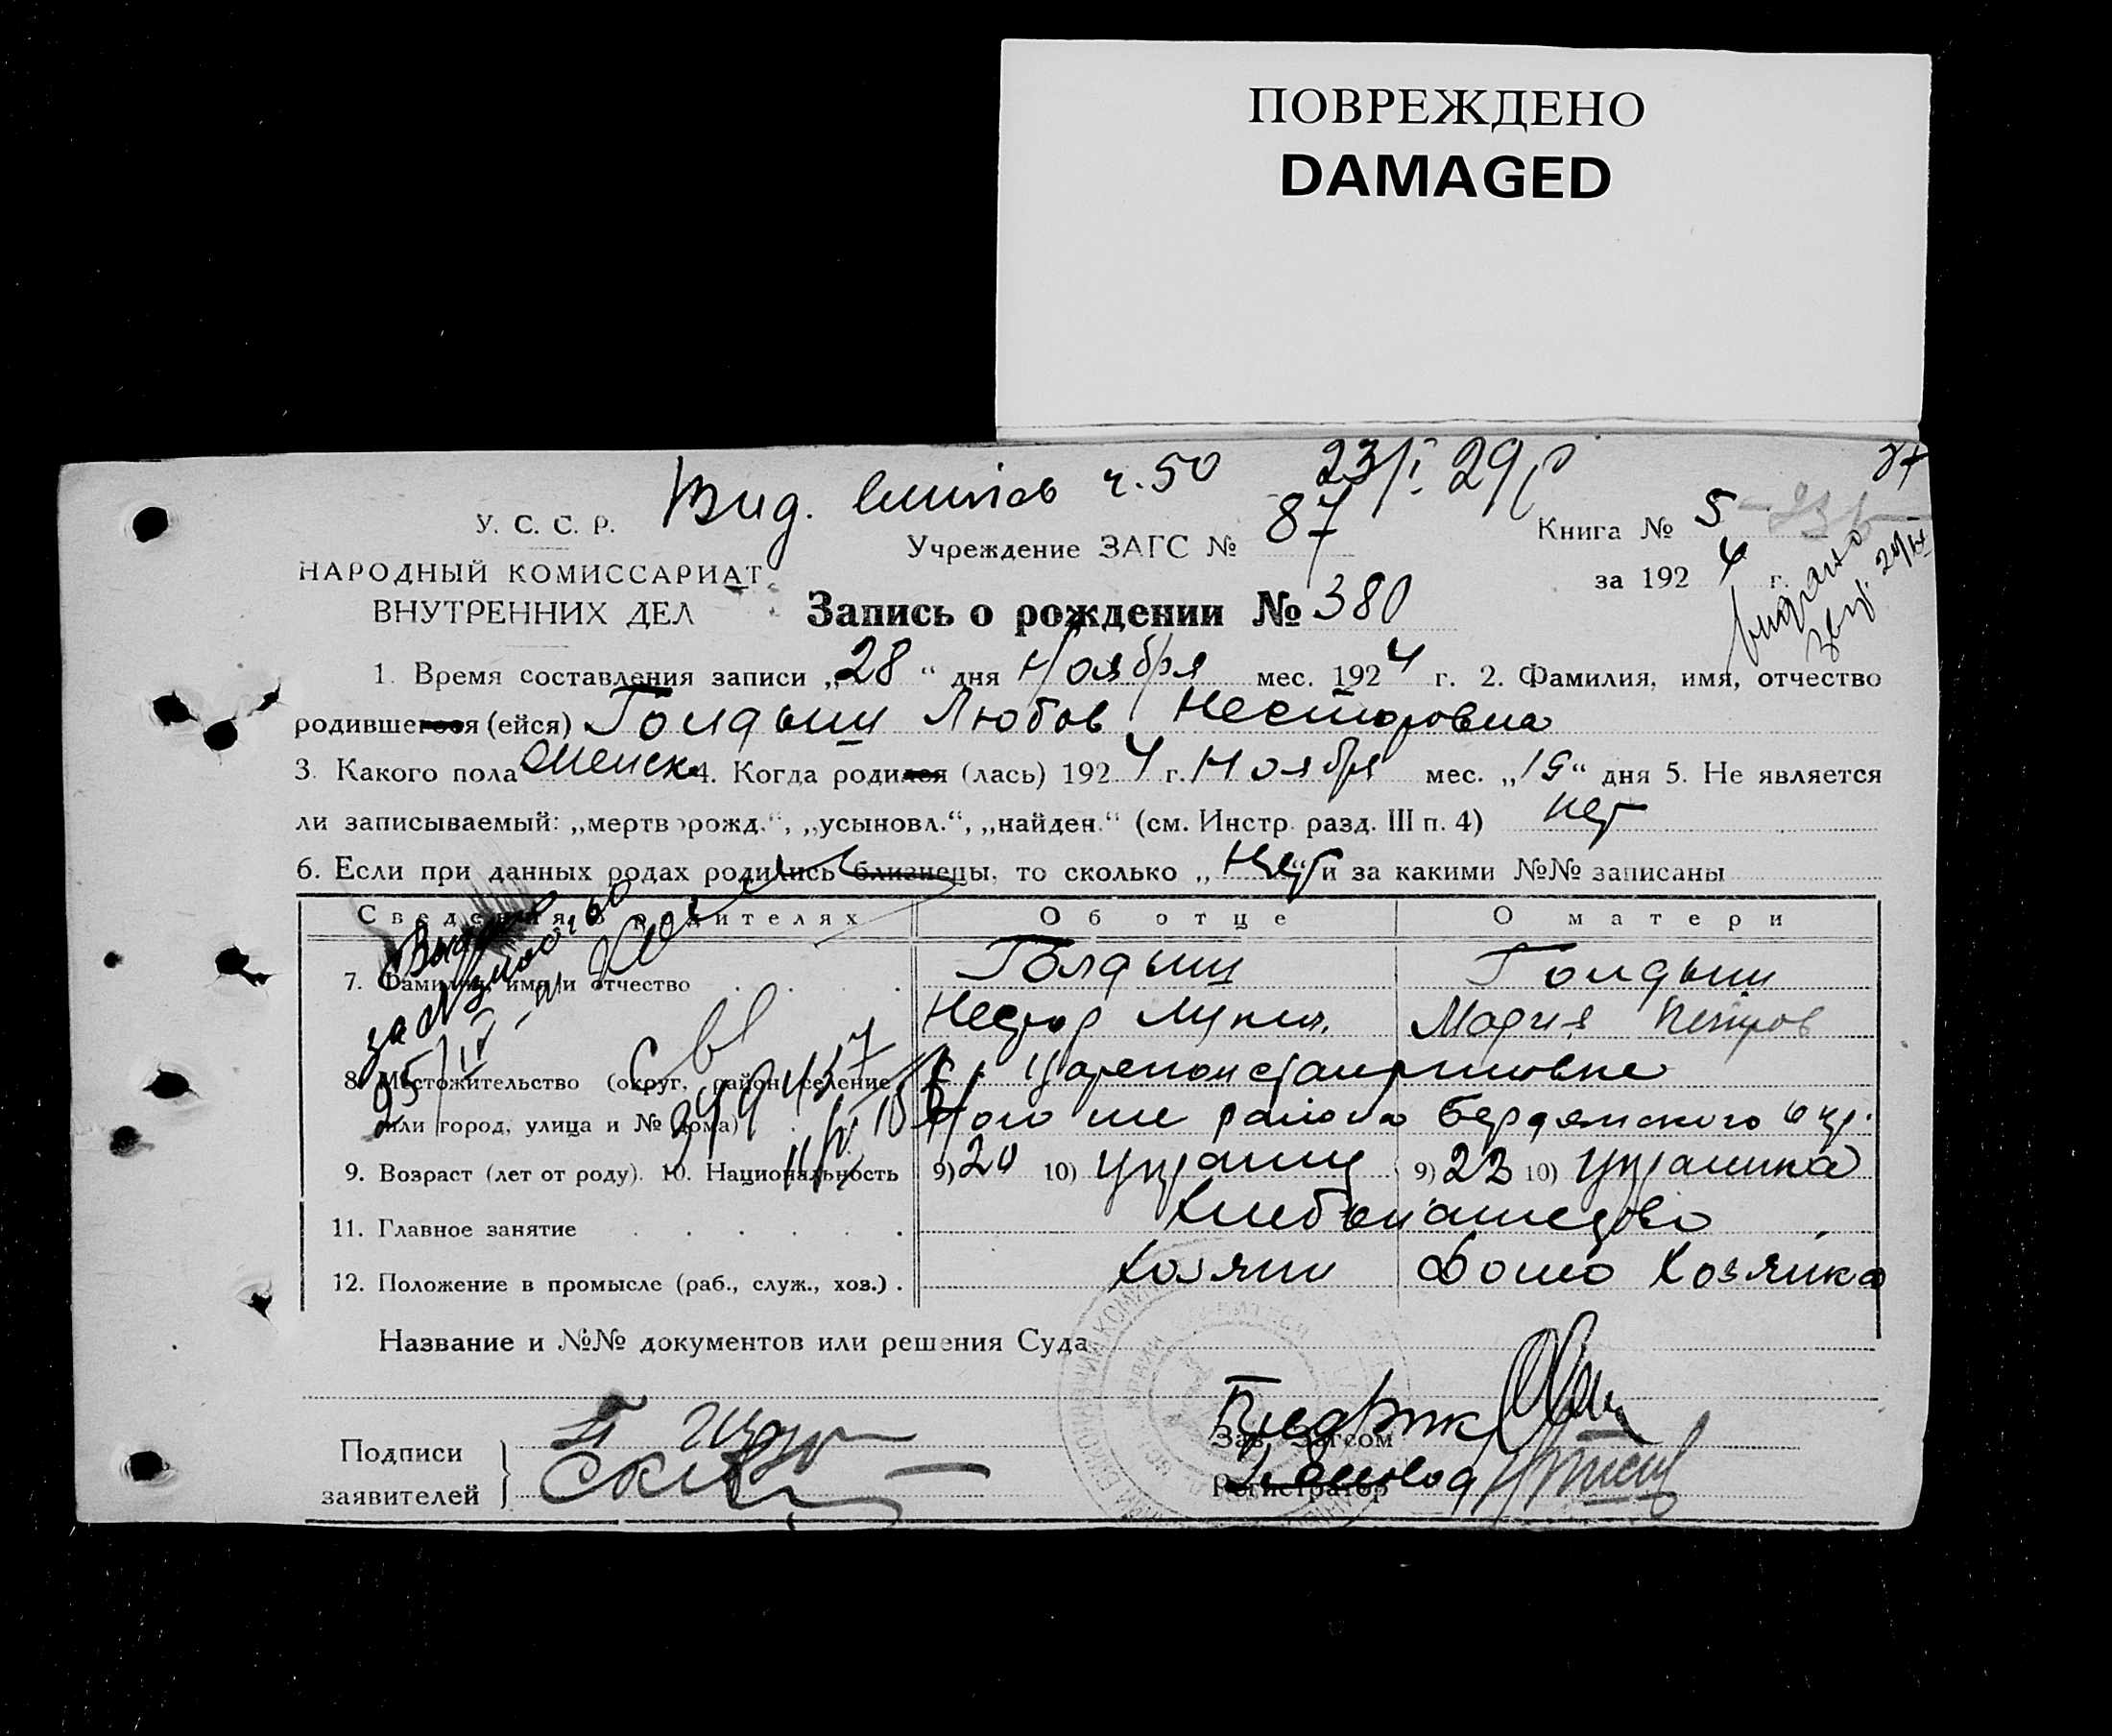 ПОВРЕЖДЕНО
DAMAGED
Вид. ч. 50 23/I. 29 р
У. С. С. Р.
НАРОДНЫЙ КОМИССАРИАТ
ВНУТРЕННИХ ДЕЛ
Учреждение ЗАГС № 87
Книга № 5
за 192 4 г.
Запись о рождении № 380
1. Время составления записи „28“ дня Ноября мес. 1924 г. 2. Фамилия, имя, отчество
родившегося (ейся) Голдыш Любов Несторовна
3. Какого пола женск 4. Когда родился (лась) 1924 г. Ноября мес. „19“ дня 5. Не является
ли записываемый: „мертворожд.“, „усыновл.“, „найден.“ (см. Инстр. разд. III п. 4) нет
6. Если при данных родах родились близнецы, то сколько „Нет“ и за какими №№ записаны
Сведения о родителях Об отце О матери
7. Фамилия, имя и отчество Голдыш Голдыш
Нестор Лукич. Мария Петров
8. Местожительство (округ, район, селение
или город, улица и № дома) того же района Бердянского окр.
9. Возраст (лет от роду). 10. Национальность 9) 20 10) украинц 9) 23 10) украинка
11. Главное занятие Хлебопашество
12. Положение в промысле (раб., служ., хоз.) Хозяин Домо Хозяйка
Название и №№ документов или решения Суда
Подписи
заявителей
Зав. Загсом
Регистратор